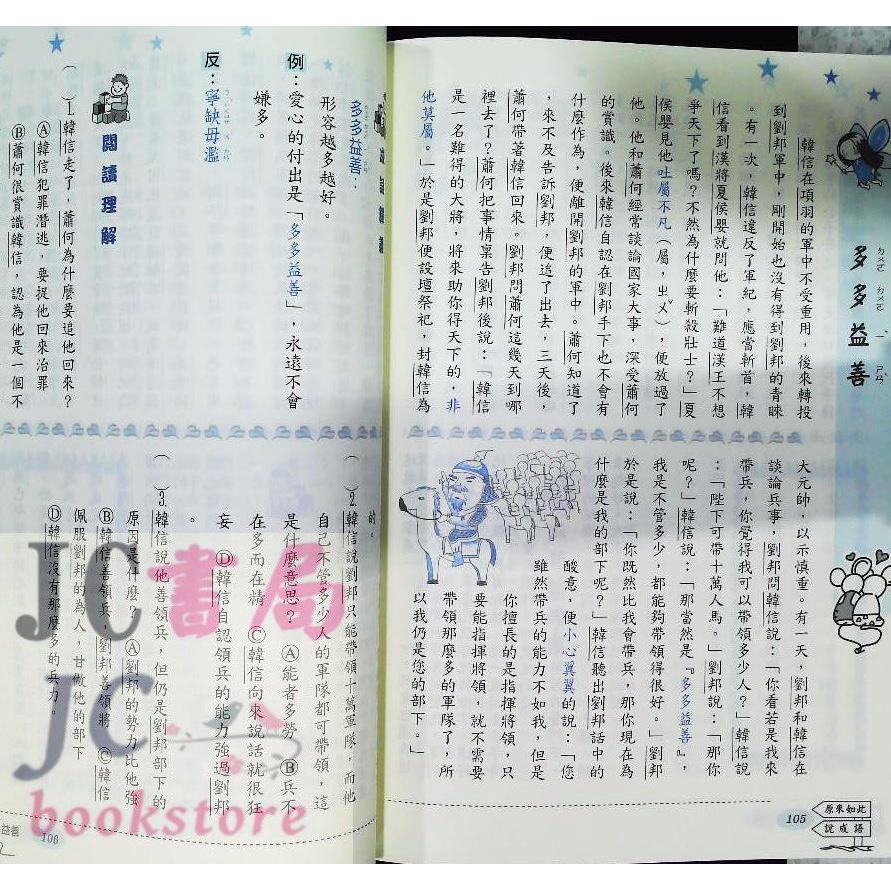 多多益善
ㄉㄨㄛ ㄉㄨㄛ ㄧˋ ㄕㄢˋ
韓信在項羽的軍中不受重用，後來轉投
到劉邦軍中，剛開始也沒有得到劉邦的青睞
。有一次，韓信違反了軍紀，應當斬首，韓
信看到漢將夏侯嬰就問他：「難道漢王不想
爭天下了嗎？不然為什麼要斬殺壯士？」夏
侯嬰見他吐屬不凡（屬，ㄓㄨˇ），便放過了
他。他和蕭何經常談論國家大事，深受蕭何
的賞識。後來韓信自認在劉邦手下也不會有
什麼作為，便離開劉邦的軍中。蕭何知道了
，來不及告訴劉邦，便追了出去，三天後，
蕭何帶著韓信回來。劉邦問蕭何這幾天到哪
裡去了？蕭何把事情稟告劉邦後說：「韓信
是一名難得的大將，將來助你得天下的，非
他莫屬。」於是劉邦便設壇祭祀，封韓信為
大元帥，以示慎重。有一天，劉邦和韓信在
談論兵事，劉邦問韓信說：「你看若是我來
帶兵，你覺得我可以帶領多少人？」韓信說
：「陛下可帶十萬人馬。」劉邦說：「那你
呢？」韓信說：「那當然是『多多益善』，
我是不管多少，都能夠帶領得很好。」劉邦
於是說：「你既然比我會帶兵，那你現在為
什麼是我的部下呢？」韓信聽出劉邦話中的
酸意，便小心翼翼的說：「您
雖然帶兵的能力不如我，但是
你擅長的是指揮將領，只
要能指揮將領，就不需要
帶領那麼多的軍隊了，所
以我仍是您的部下。」
原來如此
說成語
105
多多益善：
形容越多越好。
例：愛心的付出是「多多益善」，永遠不會
嫌多。
反：寧缺毋濫
閱讀理解
（　）1.韓信走了，蕭何為什麼要追他回來？
Ⓐ韓信犯罪潛逃，要捉他回來治罪
Ⓑ蕭何很賞識韓信，認為他是一個不
的。
（　）2.韓信說劉邦只能帶領十萬軍隊，而他
自己不管多少人的軍隊都可帶領，這
是什麼意思？　Ⓐ能者多勞　Ⓑ兵不
在多而在精　Ⓒ韓信向來說話就很狂
妄　Ⓓ韓信自認領兵的能力強過劉邦
。
（　）3.韓信說他善領兵，但仍是劉邦部下的
原因是什麼？　Ⓐ劉邦的勢力比他強
Ⓑ韓信善領兵，劉邦善領將　Ⓒ韓信
佩服劉邦的為人，甘做他的部下
Ⓓ韓信沒有那麼多的兵力。
益善
106
JC書局
JC
bookstore